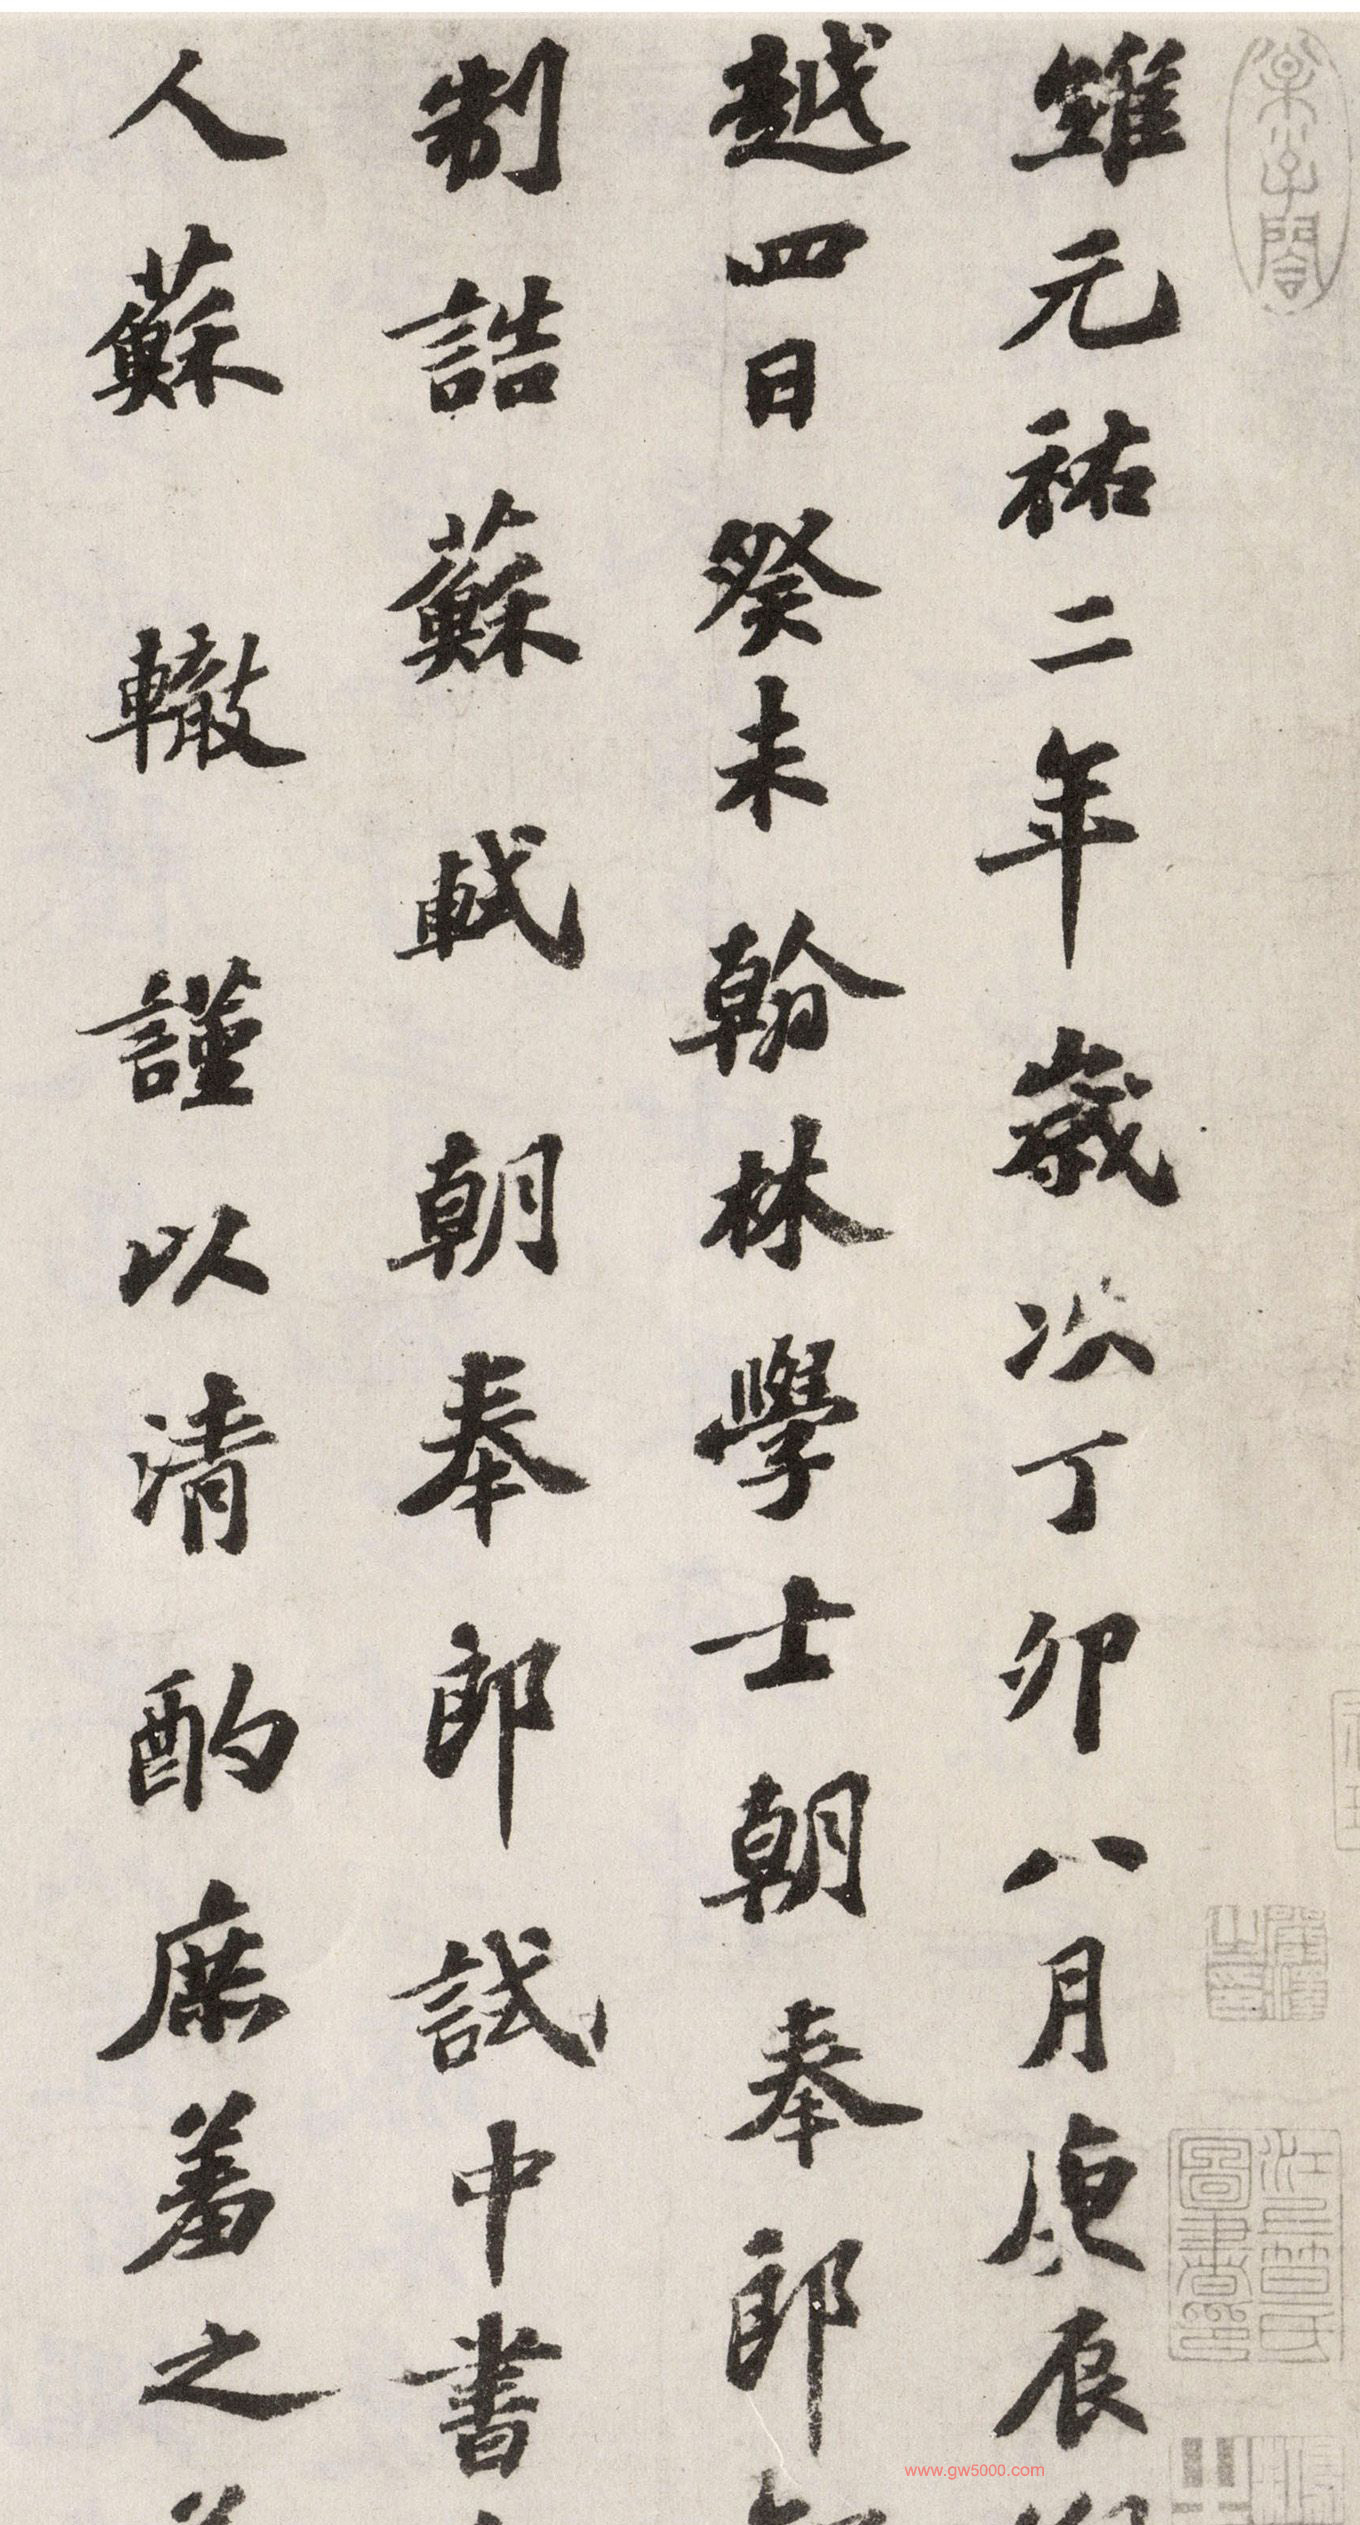 雖元祐二年歲次丁卯八月庚辰
越四日癸未翰林學士朝奉郎
制誥蘇軾朝奉郎試中書
人蘇轍謹以清酌庶羞之
www.gw5000.com